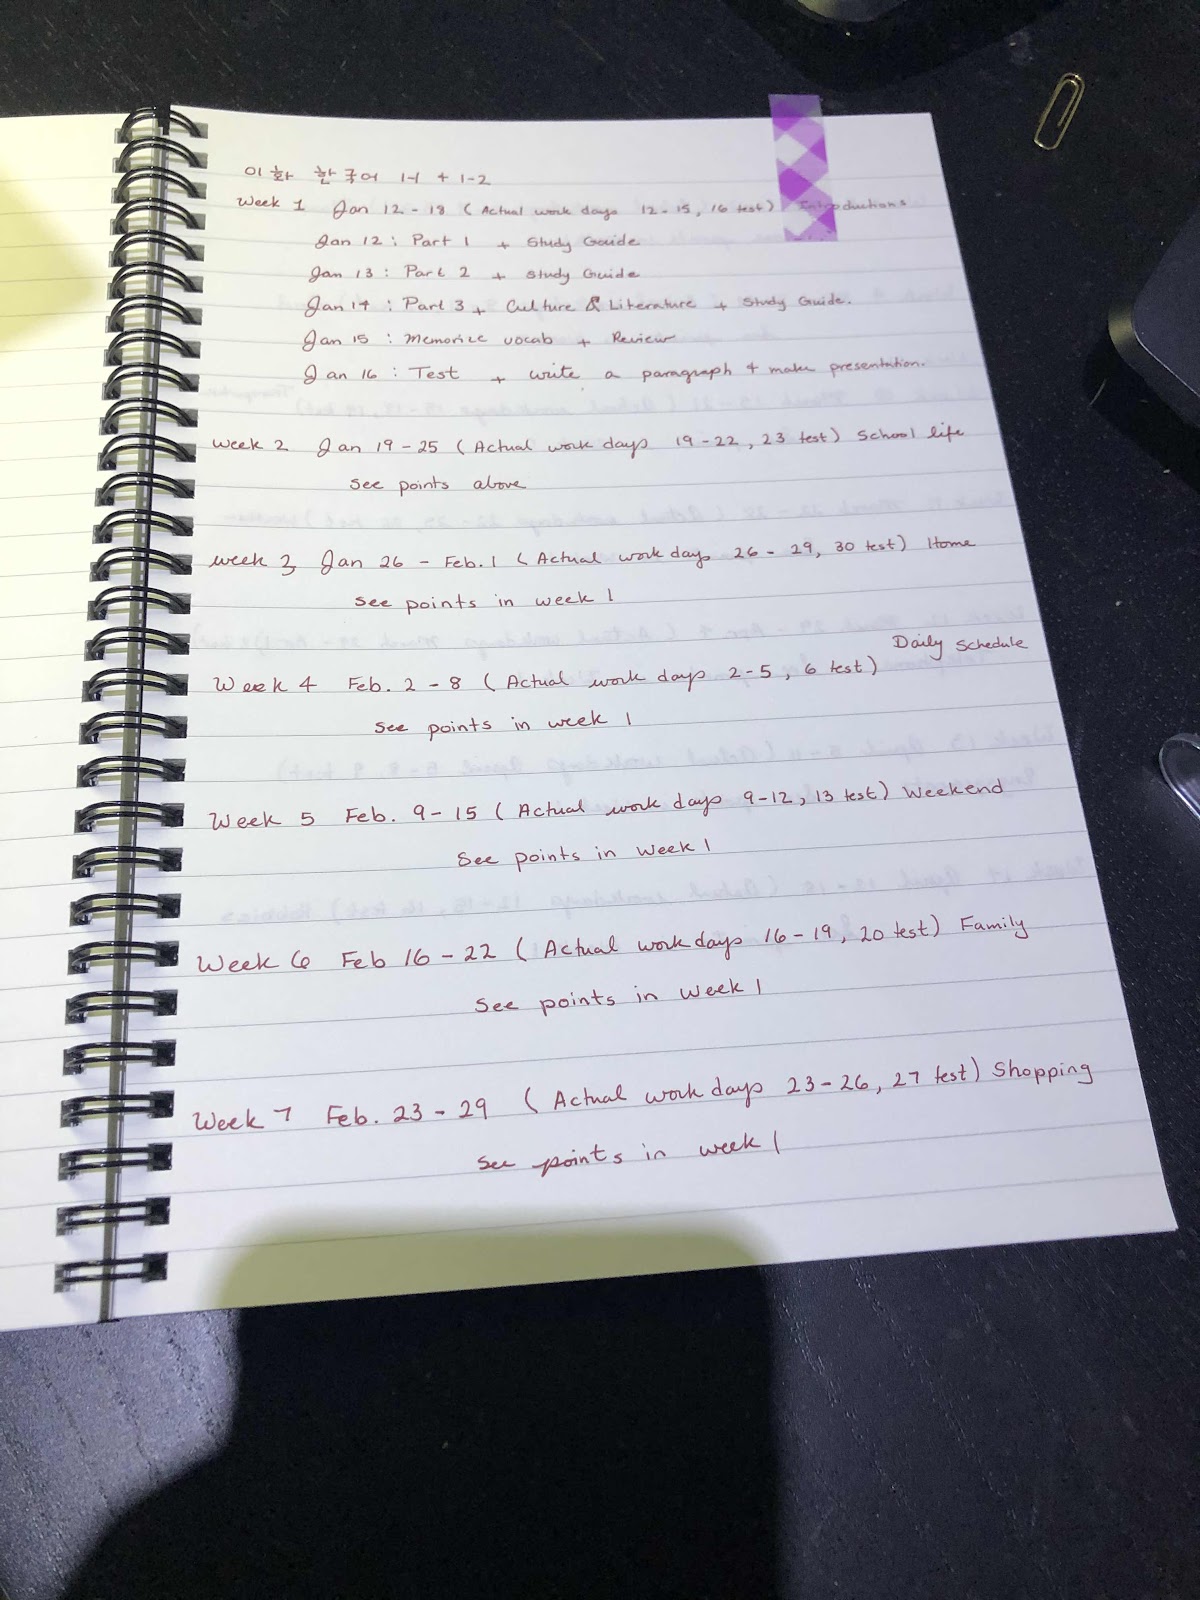 이화 한국어 1-1 + 1-2
Week 1 Jan 12 - 18 (Actual work days 12-15, 16 test) Introductions
Jan 12 : Part 1 + Study Guide
Jan 13 : Part 2 + Study Guide
Jan 14 : Part 3 + Culture & Literature + Study Guide.
Jan 15 : Memorize vocab + Review
Jan 16 : Test + write a paragraph & make presentation.
Week 2 Jan 19-25 (Actual work days 19-22, 23 test) School life
See points above
Week 3 Jan 26 - Feb. 1 (Actual work days 26 - 29, 30 test) Home
See points in week 1
Week 4 Feb. 2-8 (Actual work days 2-5, 6 test) Daily Schedule
See points in week 1
Week 5 Feb. 9-15 (Actual work days 9-12, 13 test) Weekend
See points in week 1
Week 6 Feb 16-22 (Actual work days 16-19, 20 test) Family
See points in week 1
Week 7 Feb. 23-29 (Actual work days 23-26, 27 test) Shopping
See points in week 1